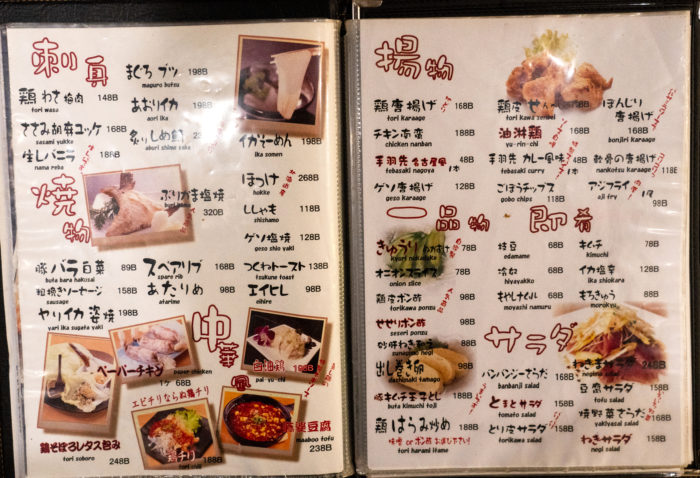 刺身
まぐろ ブツ 198B
maguro butsu
鶏 わさ 梅肉 148B
tori wasa
あおりイカ 198B
aori ika
ささみ胡麻ユッケ 168B
sasami yukke
炙りしめ鯖
aburi shime saba
生しバニラ 188B
nama reba
イカそーめん 198B
ika somen
焼物
ぶりかま塩焼 320B
ほっけ 268B
hokke
ししゃも 118B
shishamo
ゲソ塩焼 128B
geso shio yaki
豚バラ白菜 89B
buta bara hakusai
スペアリブ 168B
spare rib
つくねトースト 138B
tsukune toast
粗挽きソーセージ 158B
sausage
あたりめ 98B
atarime
エイヒレ 128B
eihire
ヤリイカ姿焼 198B
yari ika sugata yaki
中華
ペーパーチキン
paper chicken
1ヶ 68B
白油鶏 198B
pai yu chi
エビチリならぬ鶏チリ
鶏チリ 188B
鶏そぼろレタス包み
tori soboro 248B
麻婆豆腐
maaboo tofu
238B
揚物
鶏 唐揚げ 168B
tori karaage
鶏皮せんべい 168B
tori kawa senbei
ぼんじり
唐揚げ
168B
bonjiri karaage
チキン南蛮 168B
chicken nanban
油淋鶏 168B
yu-rin-chi
手羽先 名古屋風 48B
tebasaki nagoya 1本
手羽先 カレー風味 48B
tebasaki curry 1本
軟骨の唐揚げ
nankotsu karaage 118B
ゲソ唐揚げ 98B
geso karaage
ごぼうチップス
gobo chips 118B
アジフライ
aji fry 98B
一品物 即肴
きゅうり ぬか漬け
kyuri nukazuke 78B
枝豆 78B
edamame
キムチ 78B
kimuchi
オニオンスライス 78B
onion slice
冷奴 68B
hiyayakko
イカ塩辛 78B
ika shiokara
鶏皮ポン酢 98B
torikawa ponzu
もやしナムル 68B
moyashi namuru
もろきゅう 88B
morokyu
せせりポン酢 98B
seseri ponzu
砂肝ねぎ 88B
sunagimo negi
出し巻き卵 98B
dashimaki tamago
サラダ
バンバンジーサラダ 158B
banbanji salad
わさまサラダ 248B
豆腐サラダ 168B
tofu salad
豚キムチ 玉子とじ 168B
buta kimuchi toji
とまとサラダ 158B
tomato salad
焼野菜サラダ 168B
yakiyasai salad
鶏はらみ炒め 168B
味噌 or ポン酢 お選び下さい!
tori harami itame
とり皮サラダ 158B
torikawa salad
ねぎサラダ 158B
negi salad